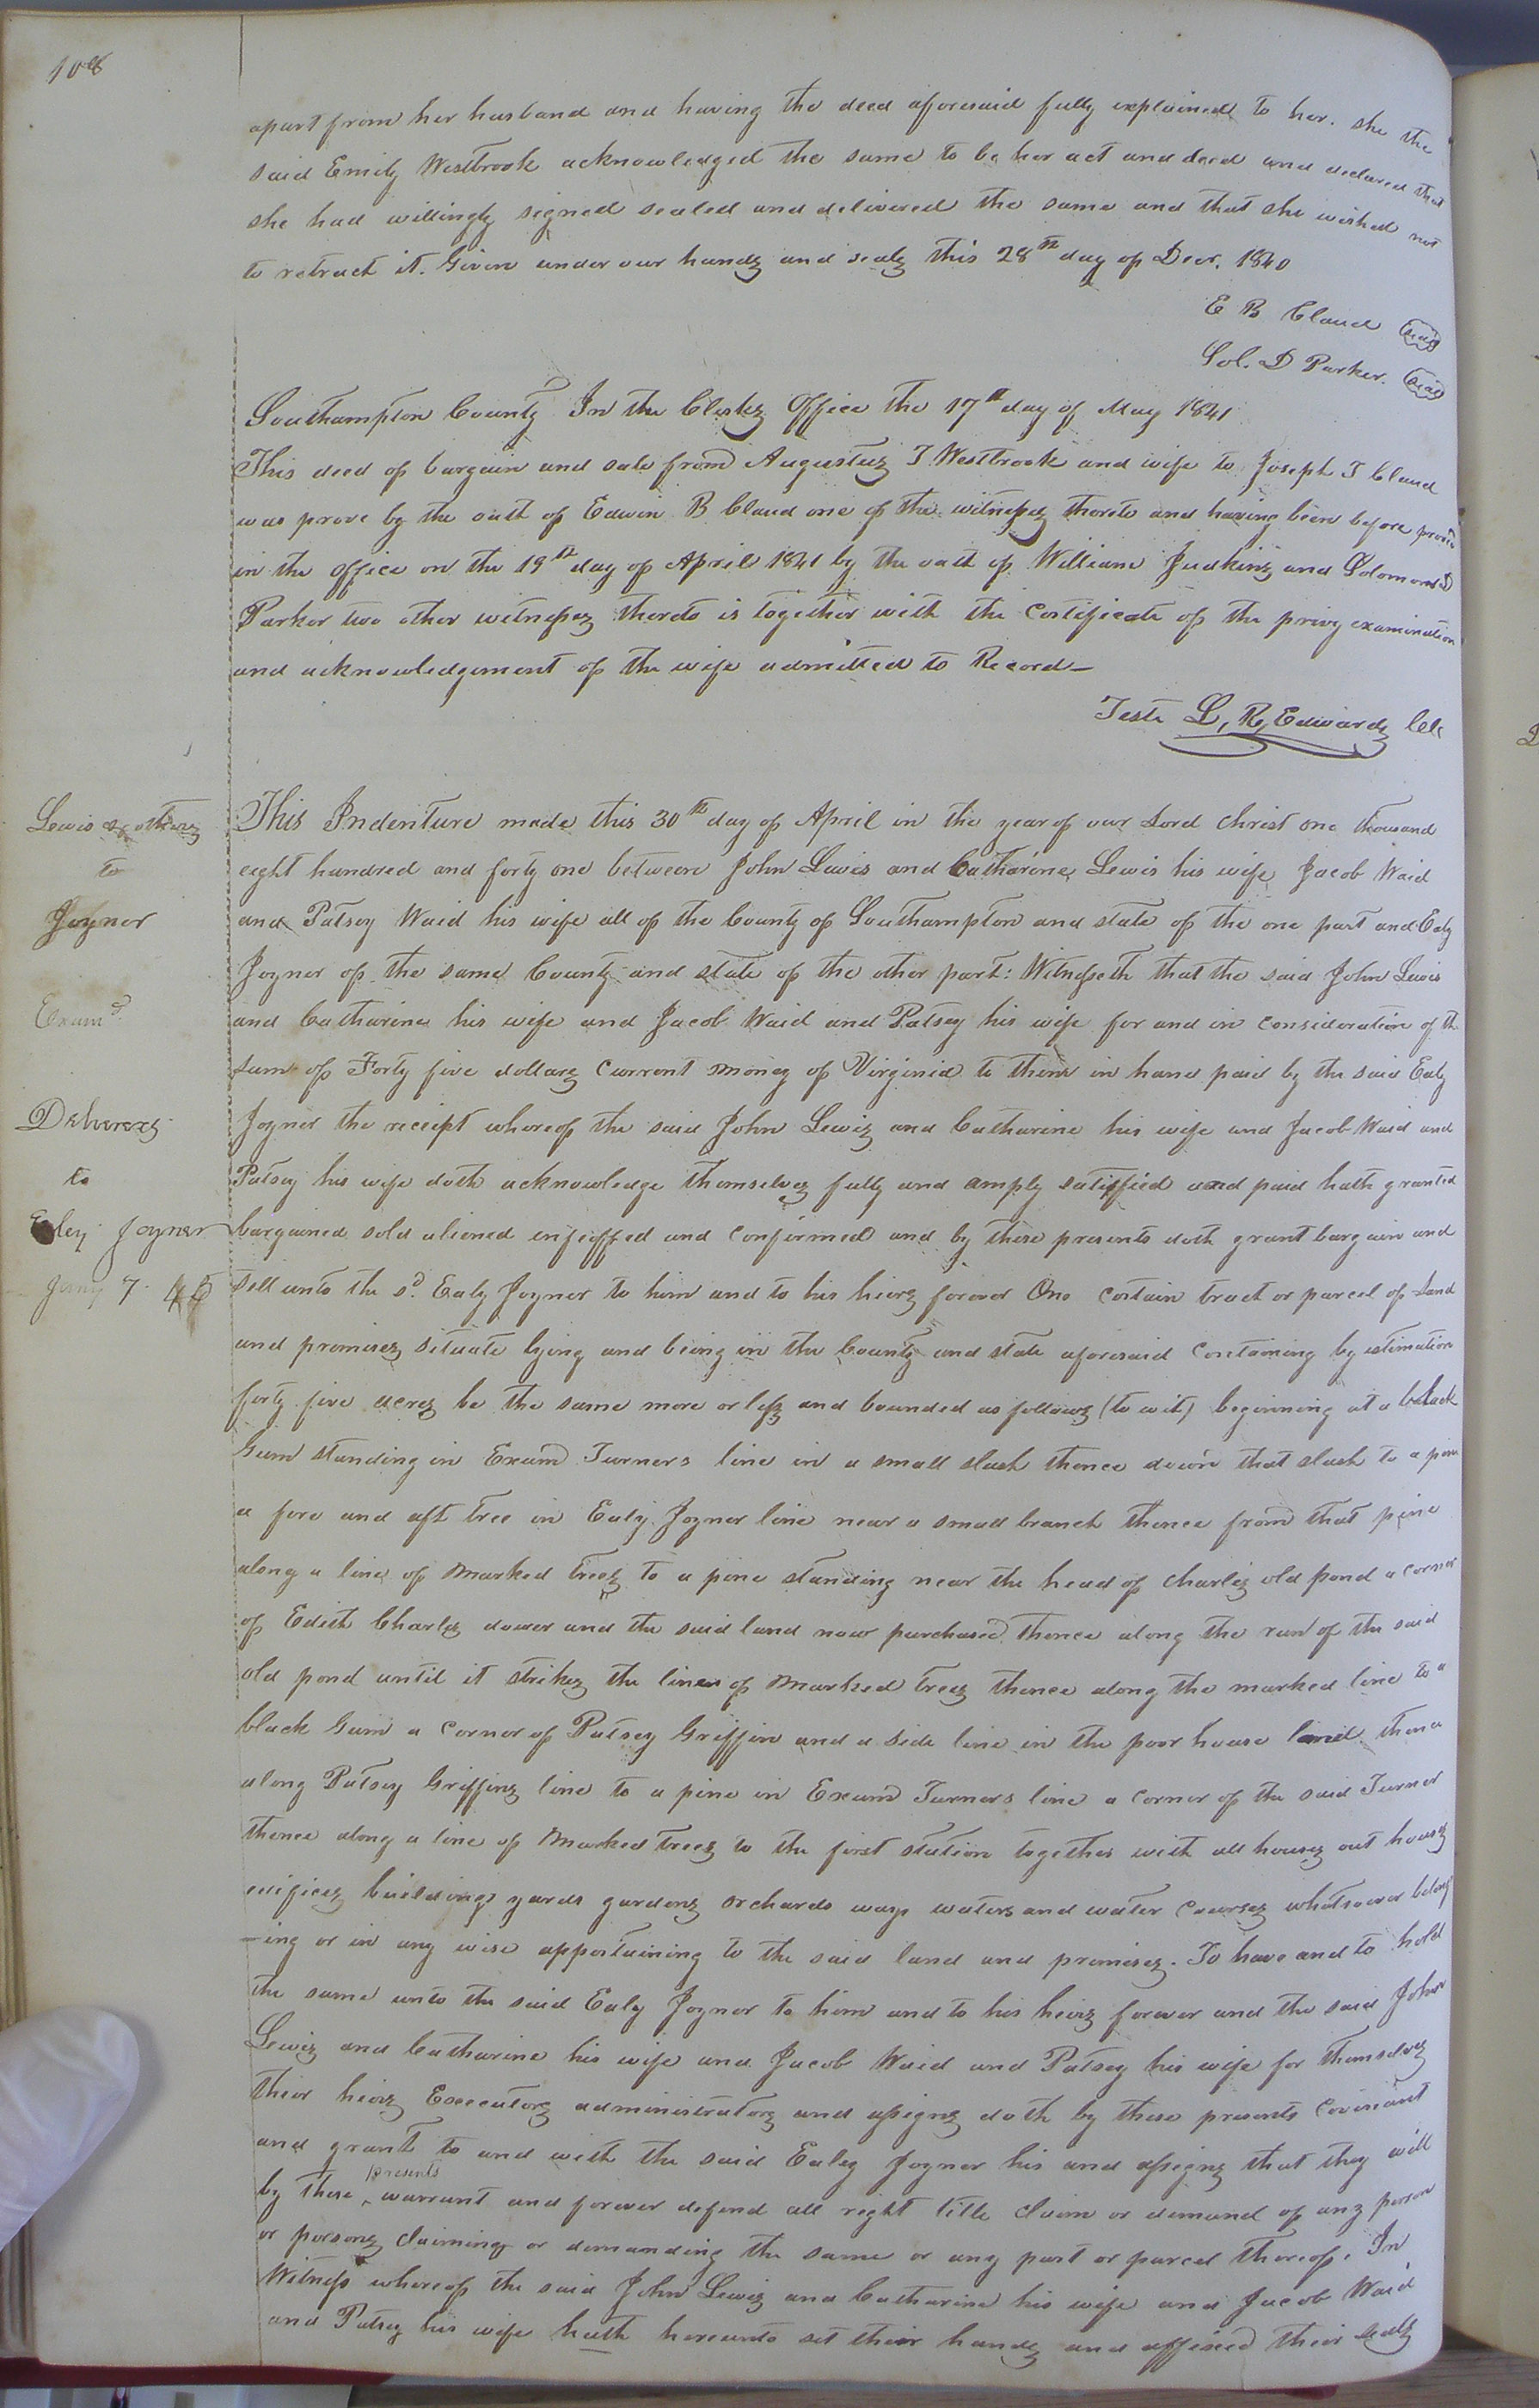 108
apart from her husband and having the deed aforesaid fully explained to her. she the
said Emily Westbrook acknowledged the same to be her act and deed and declared that
she had willingly signed sealed and delivered the same and that she wished not
to retract it. Given under our hands and seals this 28th day of Decr. 1840
E B Claud (seal)
Sol. D Parker. (seal)
Southampton County In the Clerks Office the 17th day of May 1841
This deed of bargain and sale from Augustus T Westbrook and wife to Joseph T Claud
was prove by the oath of Edwin B Claud one of the witnesses thereto and having been before proven
in the office on the 19th day of April 1841 by the oath of William Judkins and Solomon D
Parker two other witnesses thereto is together with the certificate of the privy examination
and acknowledgement of the wife admitted to Record—
Teste L, R, Edwards Clk
Lewis & others
to
Joyner
Examd.
Delivered
to
Ealey Joyner
Jany 7. 45
This Indenture made this 30th day of April in the year of our Lord Christ one thousand
eight hundred and forty one between John Lewis and Catharine Lewis his wife Jacob Waid
and Patsey Waid his wife all of the County of Southampton and state of the one part and Ealy
Joyner of the same County and state of the other part: Witnesseth that the said John Lewis
and Catharine his wife and Jacob Waid and Patsey his wife for and in consideration of the
sum of Forty five dollars current money of Virginia to them in hand paid by the said Ealy
Joyner the receipt whereof the said John Lewis and Catharine his wife and Jacob Waid and
Patsey his wife doth acknowledge themselves fully and amply satisfied and paid hath granted
bargained sold aliened enfeoffed and confirmed and by these presents doth grant bargain and
sell unto the sd. Ealy Joyner to him and to his heirs forever One certain tract or parcel of Land
and premises situate lying and being in the County and state aforesaid containing by estimation
forty five acres be the same more or less and bounded as follows (to wit) beginning at a black
Gum standing in Exum Turners line in a small slash thence down that slash to a pine
a fore and aft tree in Ealy Joyner line near a small branch thence from that pine
along a line of marked trees to a pine standing near the head of Charles old pond a corner
of Edith Charles dower and the said land now purchased thence along the run of the said
old pond until it strikes the line of marked trees thence along the marked line to a
black Gum a corner of Patsey Griffin and a side line in the poor house land thence
along Patsey Griffins line to a pine in Exum Turners line a corner of the said Turner
thence along a line of marked trees to the first station together with all houses out houses
edifices buildings yards gardens orchards ways waters and water courses whatsoever belong
-ing or in any wise appertaining to the said land and premises. To have and to hold
the same unto the said Ealy Joyner to him and to his heirs forever and the said John
Lewis and Catharine his wife and Jacob Waid and Patsey his wife for themselves
their heirs Executors administrators and assigns doth by these presents covenant
and grant to and with the said Ealey Joyner his and assigns that they will
by these presents warrant and forever defend all right title claim or demand of any person
or persons claiming or demanding the same or any part or parcel thereof. In
Witness whereof the said John Lewis and Catharine his wife and Jacob Waid
and Patsey his wife hath hereunto set their hands and affixed their seals